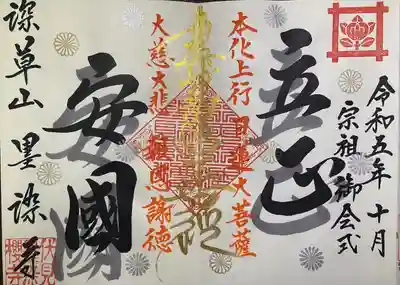 令和五年十月
宗祖御会式
立正
本化上行 日蓮大菩薩
大慈大悲 報恩謝徳
安國
深草山 墨染寺